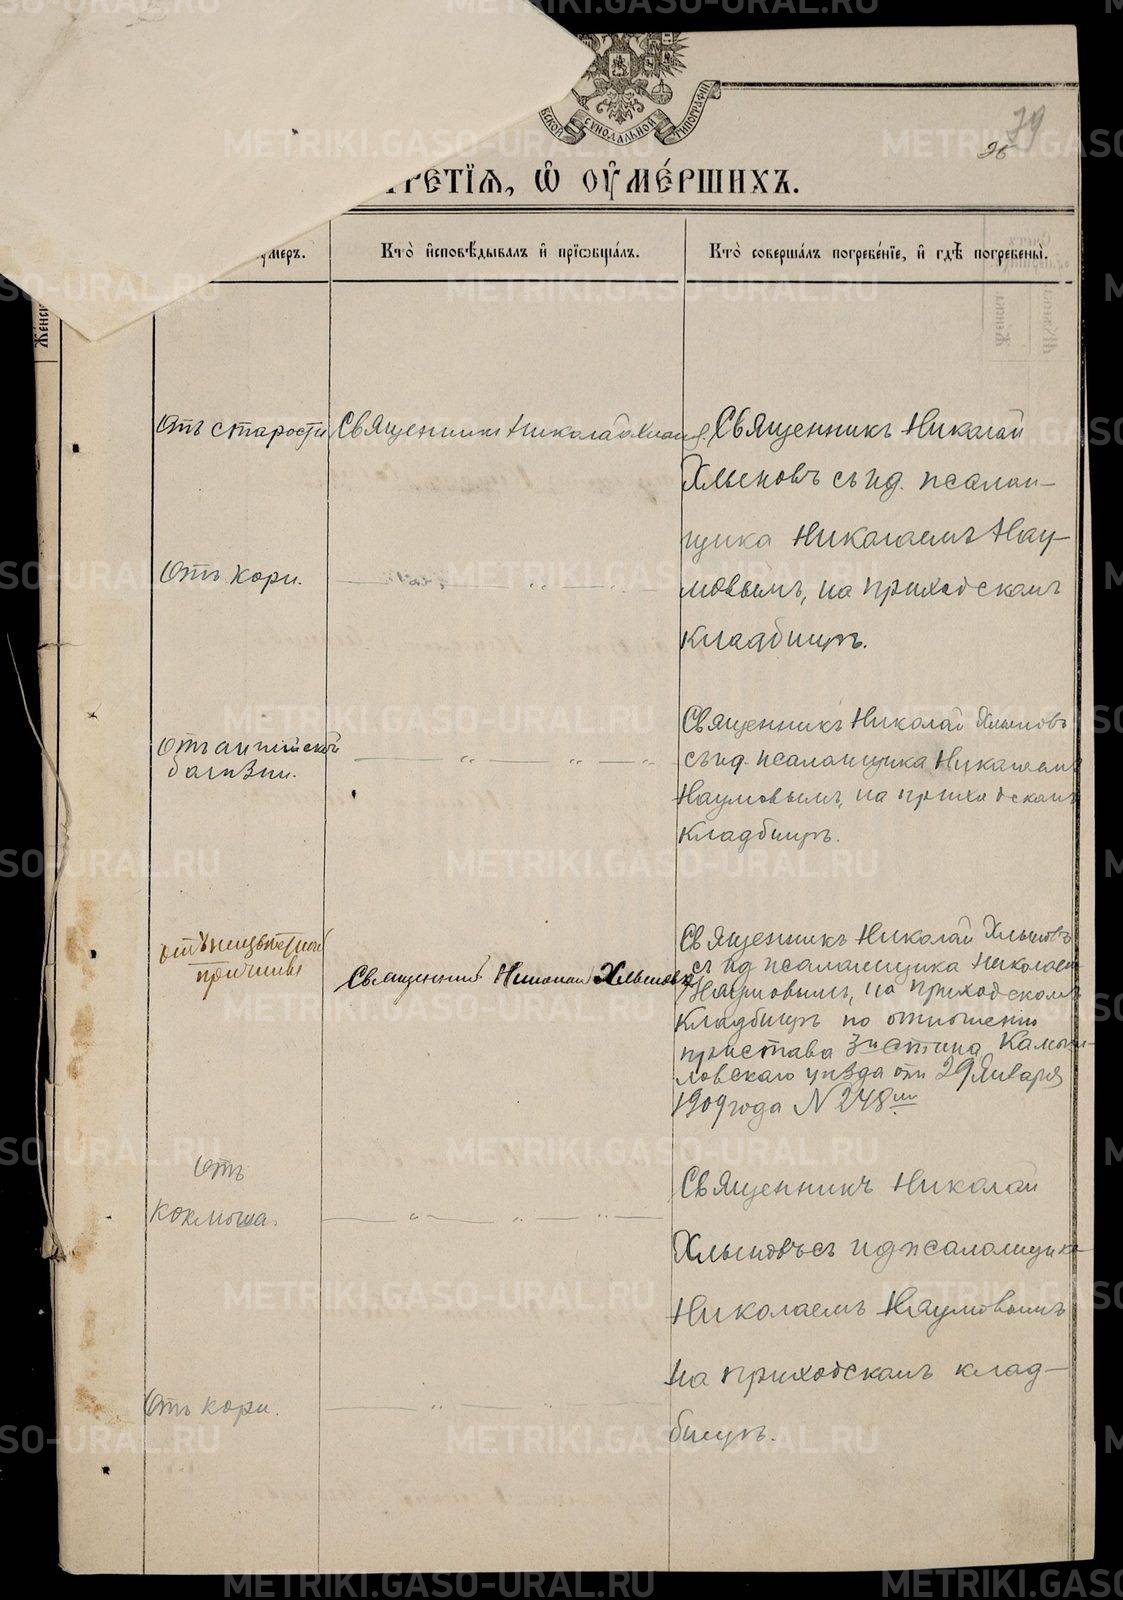 СѴНОДАЛЬНОЙ ТИПОГРАФІИ
79
96
ТРЕТІѦ, Ѡ ОУМЕРШИХЪ.
умеръ.
Кто исповѣдывалъ и пріѡбщалъ.
Кто совершалъ погребеніе, и гдѣ погребены.
Отъ старости
Священникъ Николай
Священникъ Николай
Хлыновъ съ и д. псалом-
щика Николаемъ Нау-
мовымъ, на приходскомъ
кладбищѣ.
Отъ кори.
Отъ английской
балѣзни.
Священникъ Николай Хлыновъ
съ и д. псаломщика Николаемъ
Наумовымъ, на приходскомъ
кладбищѣ.
отъ неизвѣстной
причины
Священникъ Николай Хлыновъ
Священникъ Николай Хлыновъ
съ и д псаломщика Николаем
Наумовымъ, на приходскомъ
кладбищѣ по отношенію
пристава 3го стана Камыш-
ловскаго уѣзда отъ 29 Января
1909 года № 248
Отъ
коклюша.
Священникъ Николай
Хлыновъ съ и д псаломщика
Николаемъ Наумовымъ
на приходскомъ клад-
бищѣ.
Отъ кори.
METRIKI.GASO-URAL.RU